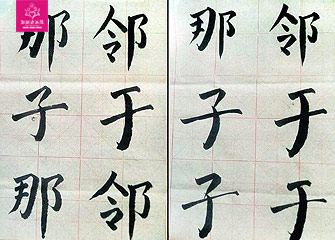 那 邻 那 邻
子 于 子 于
那 邻 子 于